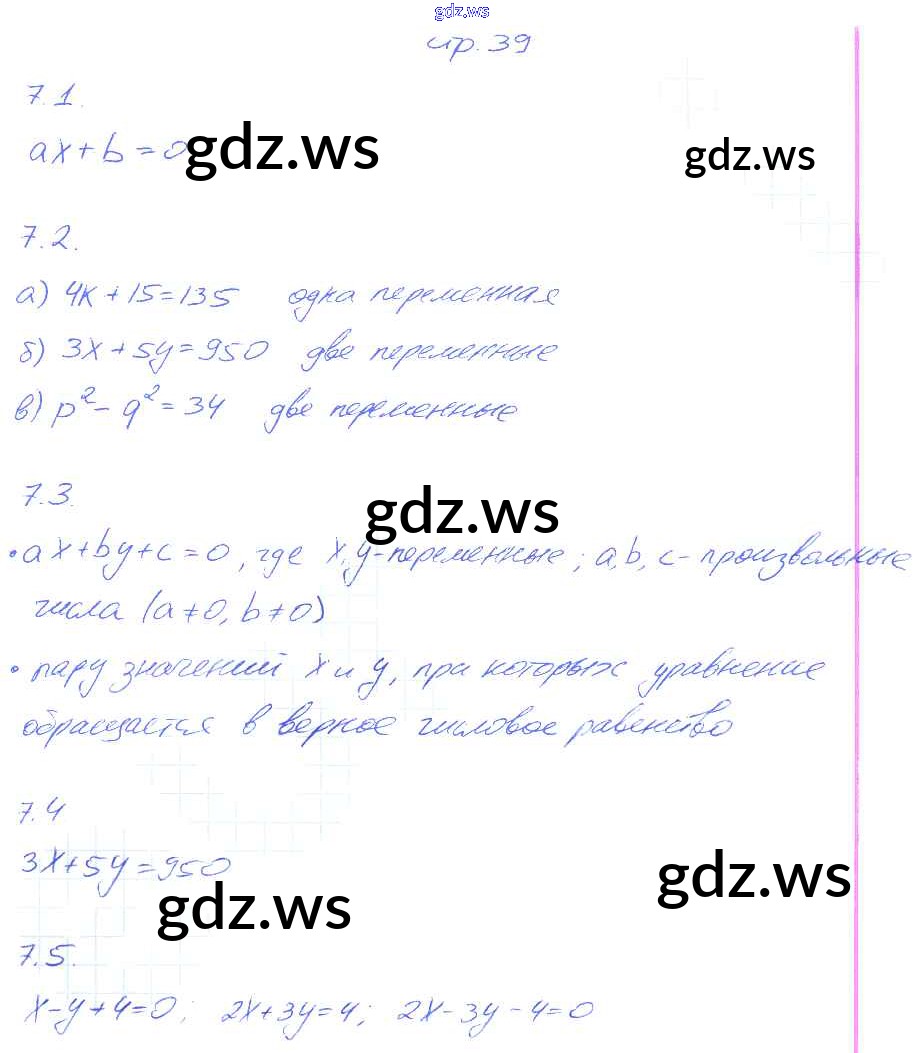 gdz.ws
стр. 39
7.1.
ax + b = 0
gdz.ws
gdz.ws
7.2.
а) 4к + 15 = 135 одна переменная
б) 3x + 5y = 950 две переменные
в) p² - q² = 34 две переменные
7.3.
gdz.ws
• ax + by + c = 0, где x, y - переменные; a, b, c - произвольные
числа (a ≠ 0, b ≠ 0)
• пару значений x и y, при которых уравнение
обращается в верное числовое равенство
7.4
3x + 5y = 950
gdz.ws
gdz.ws
7.5.
x - y + 4 = 0; 2x + 3y = 4; 2x - 3y - 4 = 0